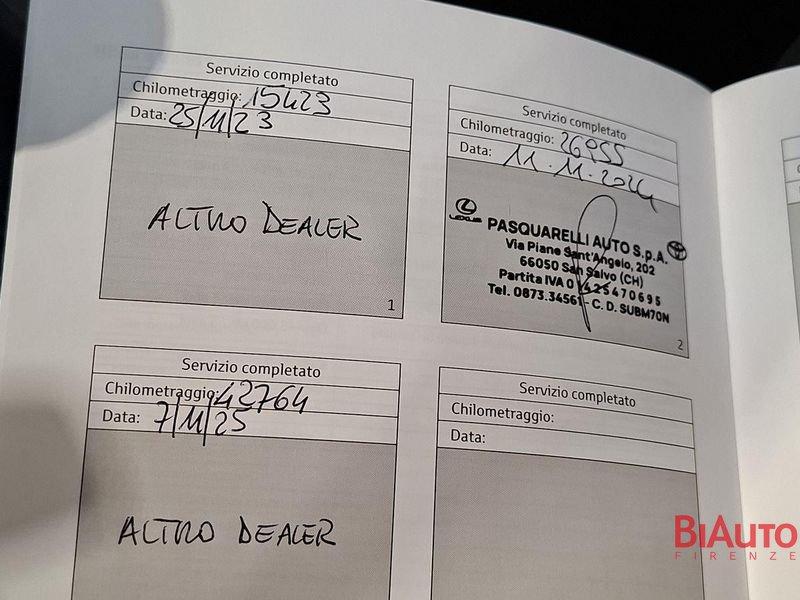 Servizio completato
Chilometraggio: 15423
Data: 25/11/23
ALTRO DEALER
1
Servizio completato
Chilometraggio: 26955
Data: 11.11.2024
LEXUS
PASQUARELLI AUTO S.p.A.
Via Piane Sant'Angelo, 202
66050 San Salvo (CH)
Partita IVA 0 425470695
Tel. 0873.34561 - C. D. SUBM70N
2
Servizio completato
Chilometraggio: 42764
Data: 7/11/25
ALTRO DEALER
Servizio completato
Chilometraggio:
Data:
BIAUTO
FIRENZE